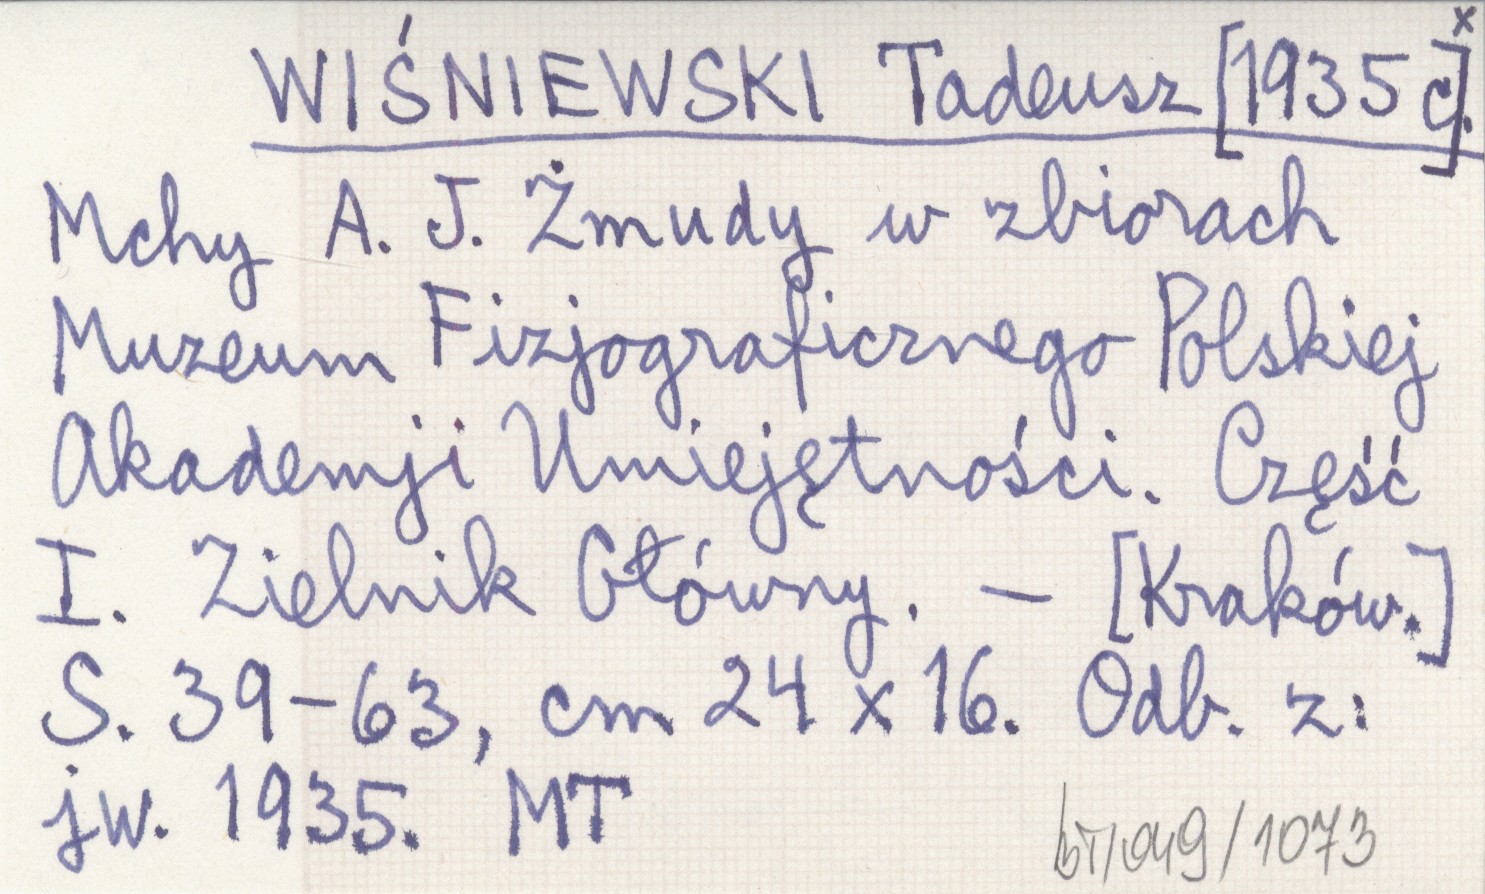 WIŚNIEWSKI Tadeusz [1935 c].x
Mchy A. J. Żmudy w zbiorach
Muzeum Fizjograficznego Polskiej
Akademji Umiejętności. Część
I. Zielnik Główny. — [Kraków.]
S. 39-63, cm 24 x 16. Odb. z:
jw. 1935. MT
/1073